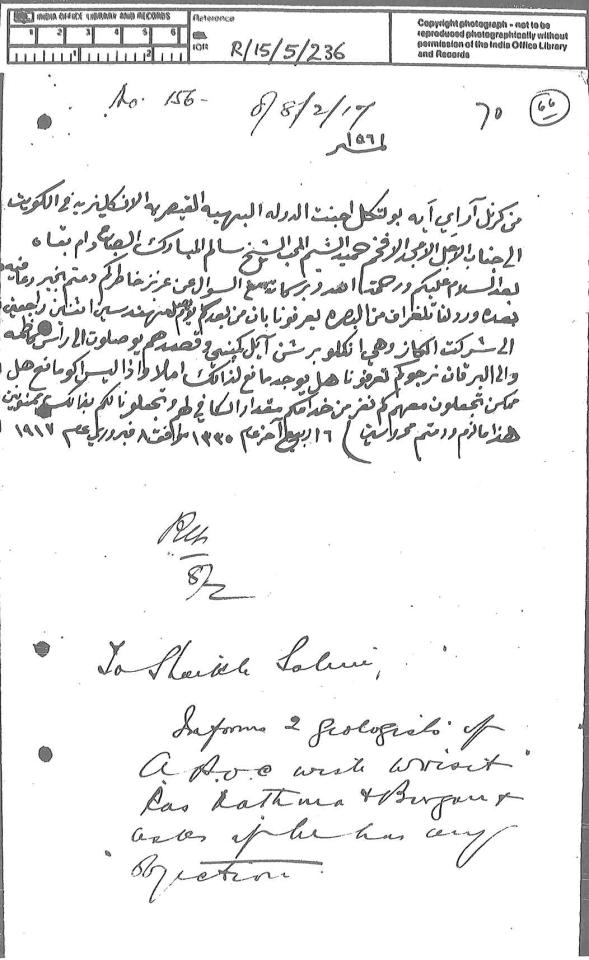 INDIA OFFICE LIBRARY AND RECORDS
1 2 3 4 5 6
1 2
Reference
IOR R/15/5/236
Copyright photograph - not to be
reproduced photographically without
permission of the India Office Library
and Records
No. 156 - of 8/2/17
70 66
١٥٦
من كرنل آر اي آيه بولتكل اجنت الدوله البهيه القيصريه الانكليزيه في الكويت
الى جناب الاجل الامجد الافخم حميد الشيم المحب الشيخ سالم المبارك الصباح دام بقاه
بعد السلام عليكم ورحمة الله وبركاته مع السؤال عن عزيز خاطركم دمتم بخير وعافيه
بعده ورد لنا تلغراف من البصره يعرفونا بان من بعدكم مهندسين اثنين راجعين
الى شركت الكاز وهي انكلو برشن آيل كمبني قصدهم يوصلون الى رأس كاظمه
والى البرقان نرجوكم تعرفونا هل يوجد مانع لذالك املا واذا ليس اكو مانع هل
ممكن تجعلون معهم كم نفر من خدامكم مقدار الكافي لهم وتجعلونا لكم بذالك ممنونين
هذا مالزم ودمتم محروسين ١٦ ربيع آخر عام ١٣٣٥ موافق ٨ فبروري عام ١٩١٧
8/2
To Shaikh Salim,
Informs 2 geologists of
A.P.O.C wish to visit
Ras Kathma & Burgan &
asks if he has any
objection.